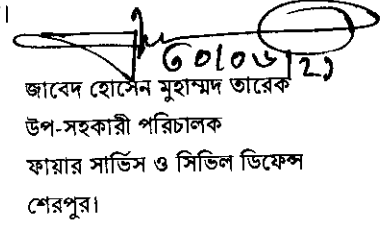 ।
জাবেদ হোসেন মুহাম্মদ তারেক
উপ-সহকারী পরিচালক
ফায়ার সার্ভিস ও সিভিল ডিফেন্স
শেরপুর।